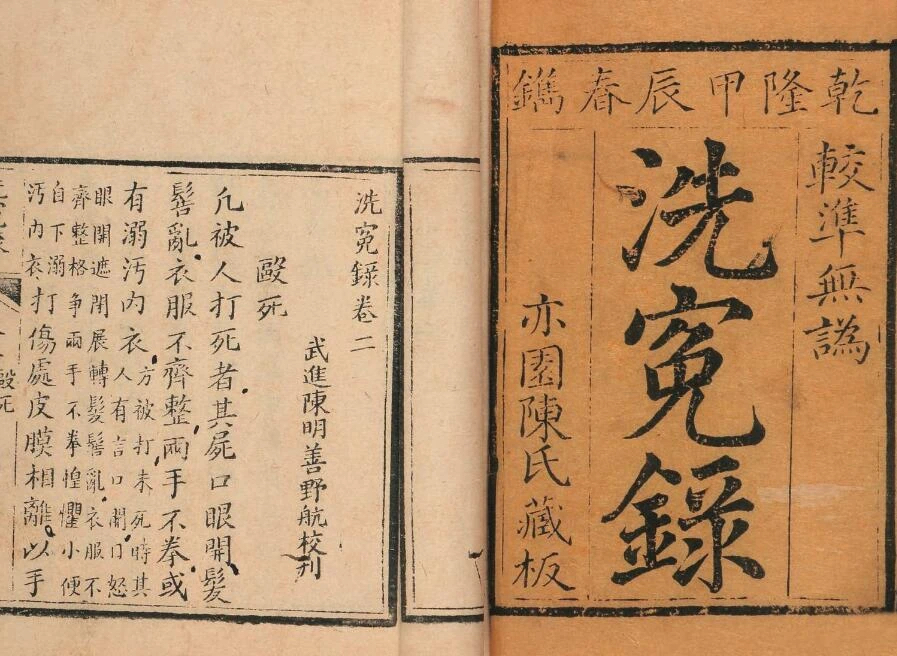 乾隆甲辰春鐫
較準無譌
洗寃錄
亦園陳氏藏板
洗寃錄卷二
武進陳明善野航校刊
毆死
凡被人打死者其屍口眼開髮
髻亂衣服不齊整兩手不拳或
有溺汚內衣方被打未死時其
人有言口開口怒
眼開遮閉展轉髮髻亂衣服不
齊整格爭兩手不拳惶懼小便
自下溺
汚內衣打傷處皮膜相離以手
毆死